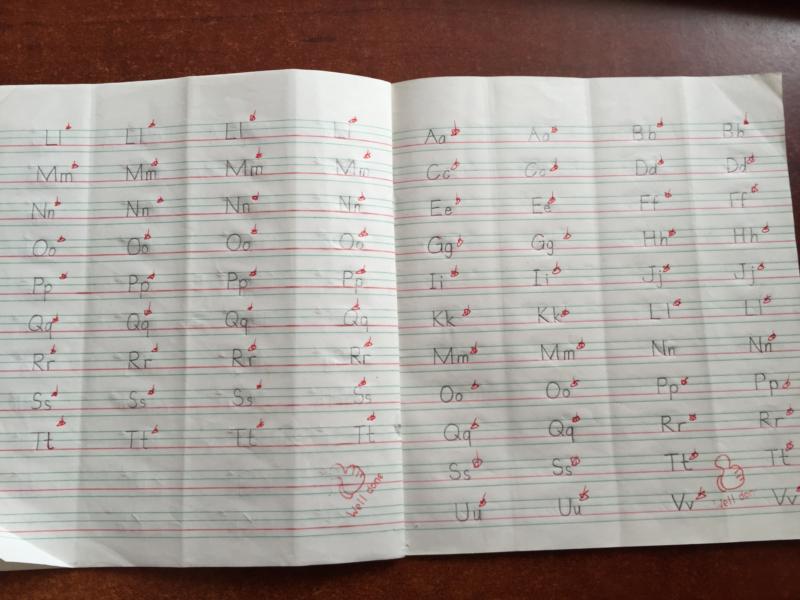 Ll Ll Ll Ll
Mm Mm Mm Mm
Nn Nn Nn Nn
Oo Oo Oo Oo
Pp Pp Pp Pp
Qq Qq Qq Qq
Rr Rr Rr Rr
Ss Ss Ss Ss
Tt Tt Tt Tt
Well done
Aa Aa Bb Bb
Cc Cc Dd Dd
Ee Ee Ff Ff
Gg Gg Hh Hh
Ii Ii Jj Jj
Kk Kk Ll Ll
Mm Mm Nn Nn
Oo Oo Pp Pp
Qq Qq Rr Rr
Ss Ss Tt Tt
Uu Uu Vv Vv
Well don